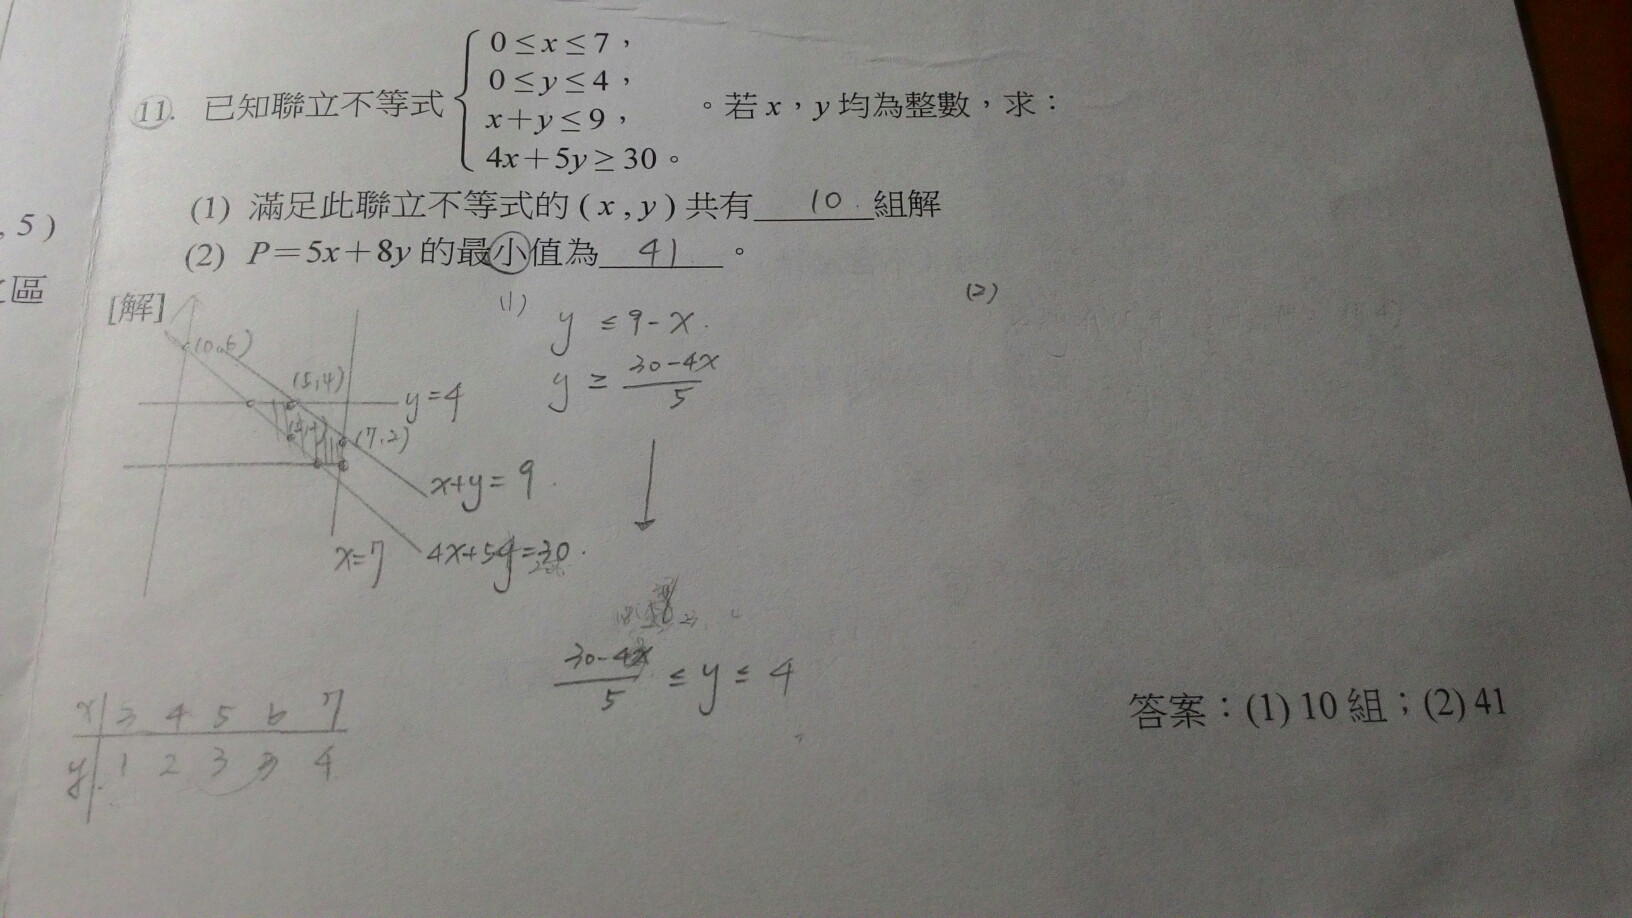 , 5 )
區
11. 已知聯立不等式
0≤x≤7,
0≤y≤4,
x+y≤9,
4x+5y≥30。
。若 x,y 均為整數,求:
(1) 滿足此聯立不等式的 ( x , y ) 共有 10 組解
(2) P=5x+8y 的最小值為 41 。
[解]
(0,6)
(5,4)
y=4
(7,2)
x+y=9
x=7
4x+5y=30
(1)
y ≤ 9-x.
y ≥ 30-4x / 5
30-4x / 5 ≤ y ≤ 4
(2)
x 3 4 5 6 7
y 1 2 3 3 4
答案:(1) 10 組;(2) 41